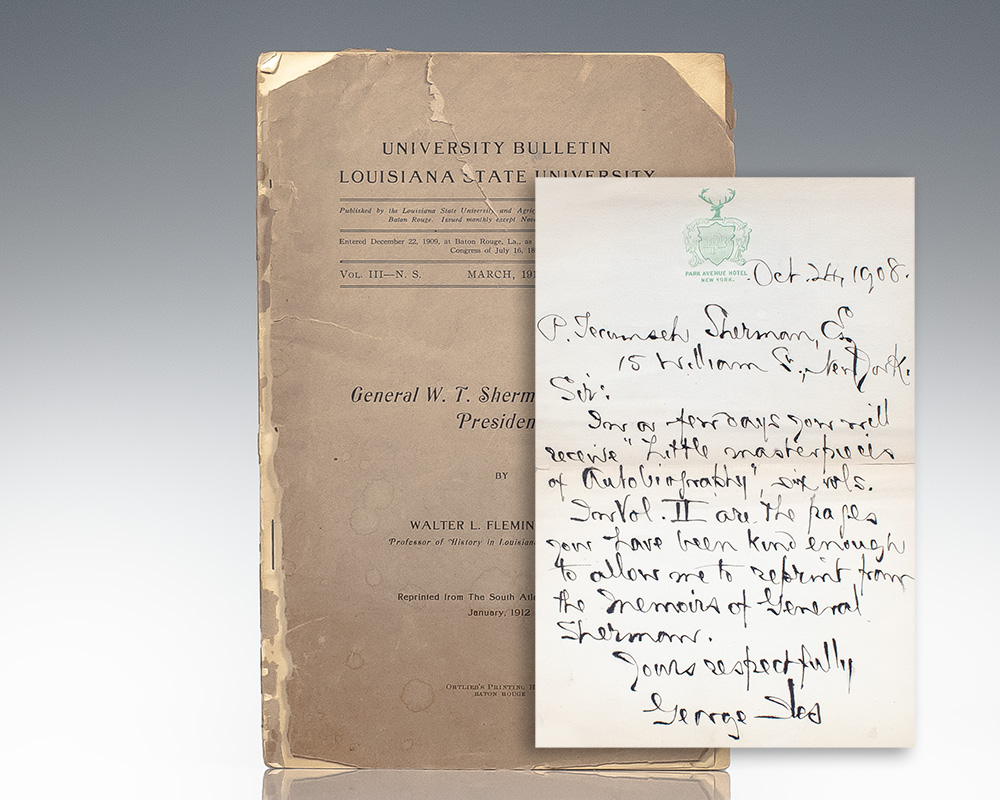 UNIVERSITY BULLETIN
LOUISIANA STATE UNIVERSITY
Published by the Louisiana State University and Agric
Baton Rouge. Issued monthly except Nov
Entered December 22, 1909, at Baton Rouge, La., as
Congress of July 16, 18
VOL. III—N. S. MARCH, 191
General W. T. Sherm
Presiden
BY
WALTER L. FLEMIN
Professor of History in Louisian
Reprinted from The South Atl
January, 1912
ORTLIEB'S PRINTING H
BATON ROUGE
PARK AVENUE HOTEL
NEW YORK.
Oct. 24, 1908.
P. Tecumseh Sherman, Esq
15 William St., New York.
Sir:
In a few days you will
receive "Little masterpieces
of Autobiography", six vols.
In Vol. II are the pages
you have been kind enough
to allow me to reprint from
the Memoirs of General
Sherman.
Yours respectfully
George Iles